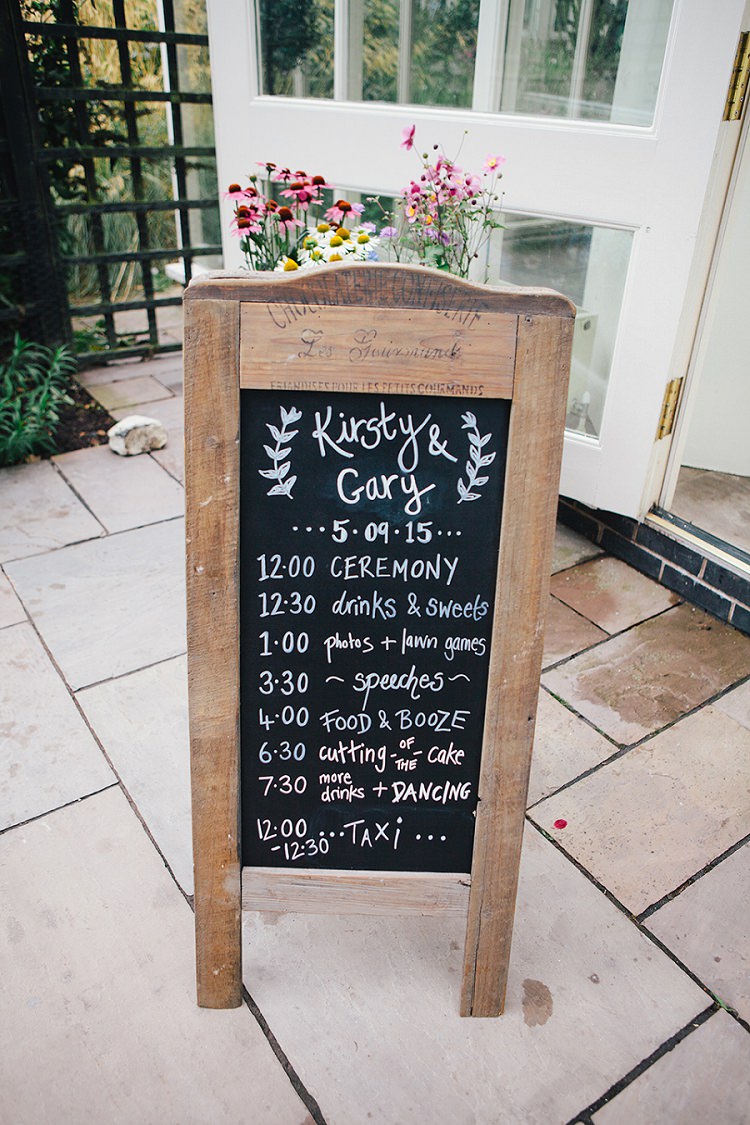 Les Gourmands
FRIANDISES POUR LES PETITS GOURMANDS
Kirsty &
Gary
...5.09.15...
12:00 CEREMONY
12:30 drinks & sweets
1:00 photos + lawn games
3:30 ~ speeches ~
4:00 FOOD & BOOZE
6:30 cutting -OF THE- cake
7:30 more drinks + DANCING
12:00 -12:30 ...TAXi ...